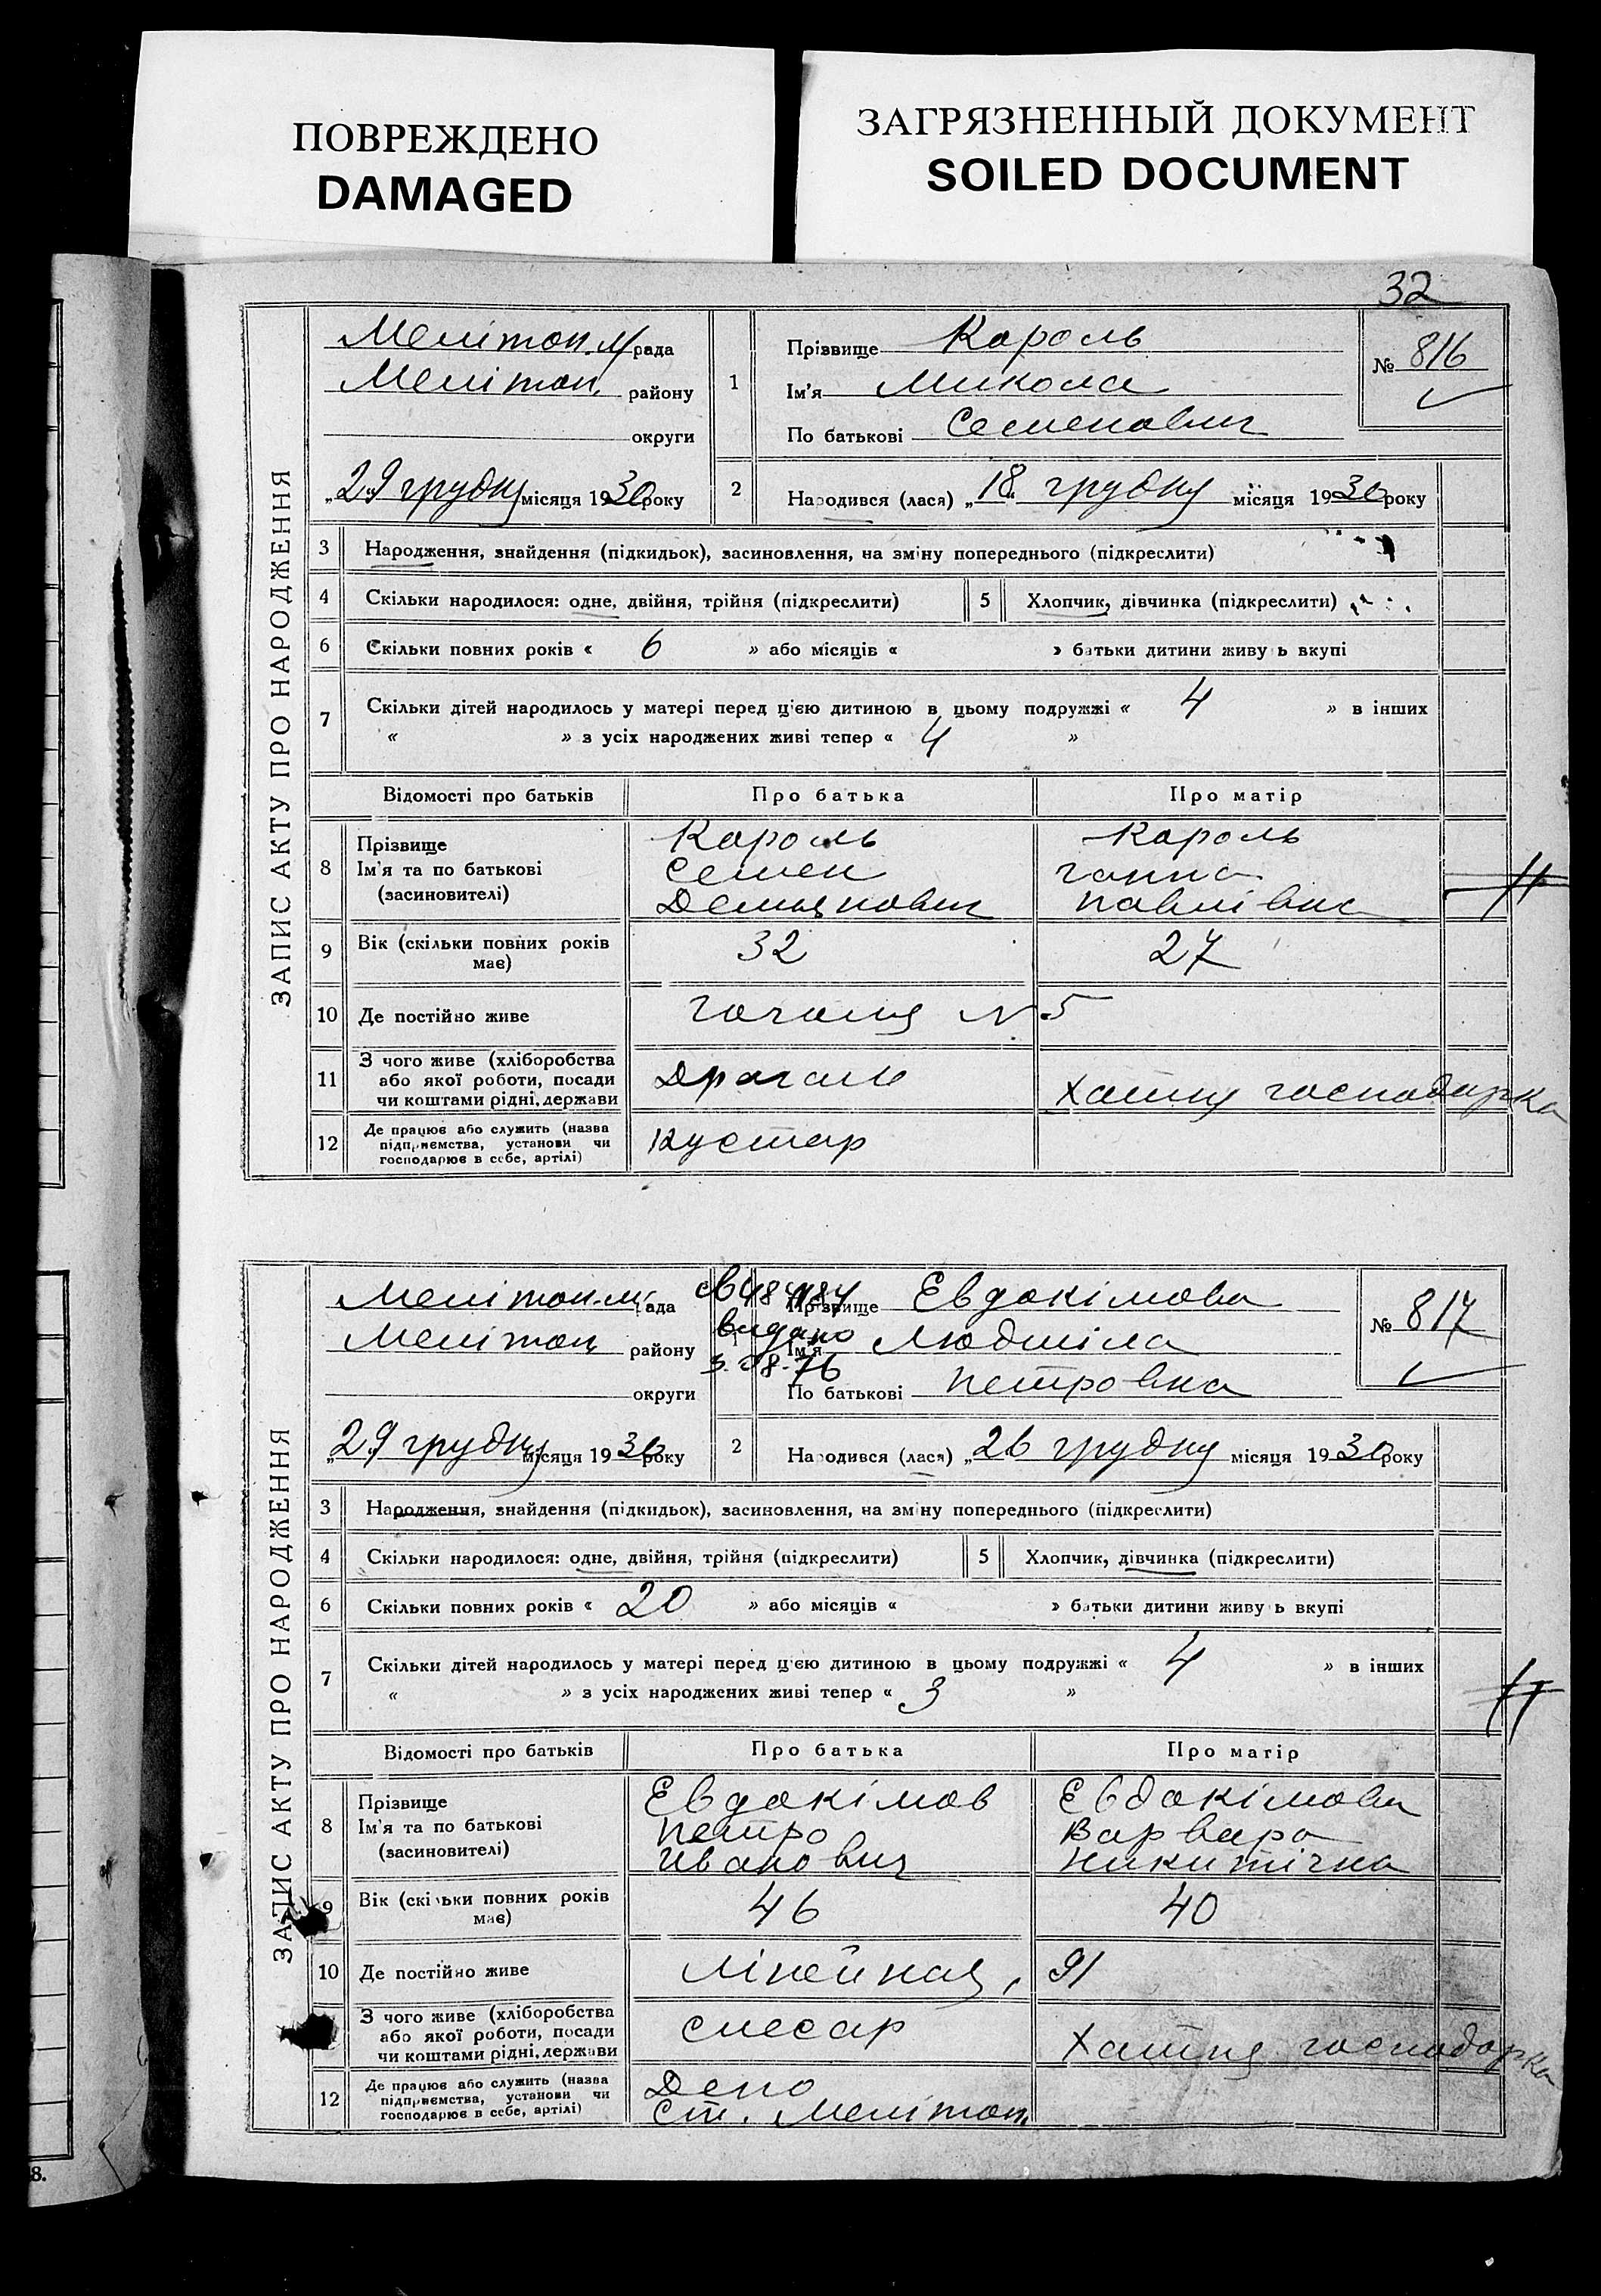 ПОВРЕЖДЕНО
DAMAGED
ЗАГРЯЗНЕННЫЙ ДОКУМЕНТ
SOILED DOCUMENT
32
ЗАПИС АКТУ ПРО НАРОДЖЕННЯ
Мелітоп. М/рада
Мелітоп. району
округи
„29 грудня місяця 1930 року
1
Прізвище Король
Ім'я Микола
По батькові Семенович
№ 816
2
Народився (лася) „18" грудня місяця 1930 року
3 Народження, знайдення (підкидьок), засиновлення, на зміну попереднього (підкреслити)
4 Скільки народилося: одне, двійня, трійня (підкреслити)
5 Хлопчик, дівчинка (підкреслити)
6 Скільки повних років « 6 » або місяців « » батьки дитини живу ь вкупі
7 Скільки дітей народилось у матері перед цією дитиною в цьому подружжі « 4 » в інших
« » з усіх народжених живі тепер « 4 »
Відомості про батьків Про батька Про матір
8 Прізвище Король Король
Ім'я та по батькові Семен Ганна
(засиновителі) Демянович Павлівна
9 Вік (скільки повних років має) 32 27
10 Де постійно живе Гоголя N 5
11 З чого живе (хліборобства
або якої роботи, посади Драгаль Хатня господарка
чи коштами рідні, держави
12 Де працює або служить (назва
підприємства, установи чи Кустар
господарює в себе, артілі)
ЗАПИС АКТУ ПРО НАРОДЖЕННЯ
Мелітоп. м/рада
Мелітоп. району
округи
„29 грудня місяця 1930 року
видано
Прізвище Евдокімова
Ім'я Людміла
По батькові Петровна
№ 817
2
Народився (лася) „26 грудня місяця 1930 року
3 Народження, знайдення (підкидьок), засиновлення, на зміну попереднього (підкреслити)
4 Скільки народилося: одне, двійня, трійня (підкреслити)
5 Хлопчик, дівчинка (підкреслити)
6 Скільки повних років « 20 » або місяців « » батьки дитини живу ь вкупі
7 Скільки дітей народилось у матері перед цією дитиною в цьому подружжі « 4 » в інших
« » з усіх народжених живі тепер « 3 »
Відомості про батьків Про батька Про матір
8 Прізвище Евдокімов Евдокімова
Ім'я та по батькові Петро Варвара
(засиновителі) Иванович Никитічна
9 Вік (скільки повних років має) 46 40
10 Де постійно живе Лінейная, 91
З чого живе (хліборобства
або якої роботи, посади слесар Хатня господарка
чи коштами рідні, держави
12 Де працює або служить (назва Депо
підприємства, установи чи
господарює в себе, артілі) ст. Мелітоп.
8.